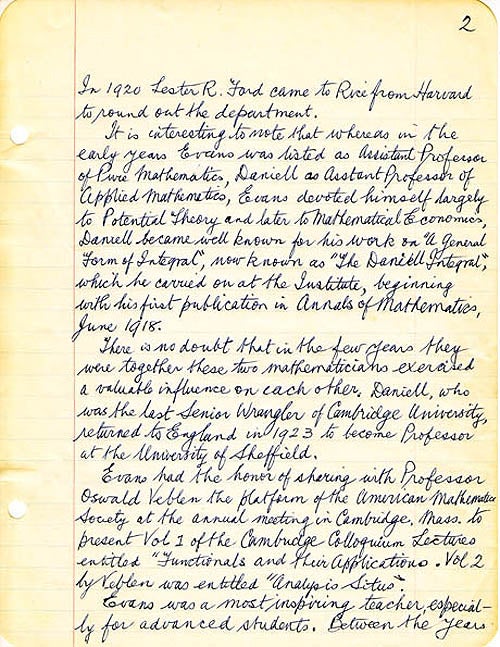 2
In 1920 Lester R. Ford came to Rice from Harvard
to round out the department.
It is interesting to note that whereas in the
early years Evans was listed as Assistant Professor
of Pure Mathematics, Daniell as Asstant Professor of
Applied Mathematics, Evans devoted himself largely
to Potential Theory and later to Mathematical Economics,
Daniell became well known for his work on "A General
Form of Integral", now known as "The Daniell Integral",
which he carried on at the Institute, beginning
with his first publication in Annals of Mathematics,
June 1918.
There is no doubt that in the few years they
were together these two mathematicians exercised
a valuable influence on each other. Daniell, who
was the last Senior Wrangler of Cambridge University,
returned to England in 1923 to become Professor
at the University of Sheffield.
Evans had the honor of sharing with Professor
Oswald Veblen the platform of the American Mathematica
Society at the annual meeting in Cambridge, Mass. to
present Vol 1 of the Cambridge Colloquium Lectures
entitled "Functionals and their Applications. Vol. 2
by Veblen was entitled "Analysis Situs".
Evans was a most inspiring teacher, especial-
ly for advanced students. Between the years